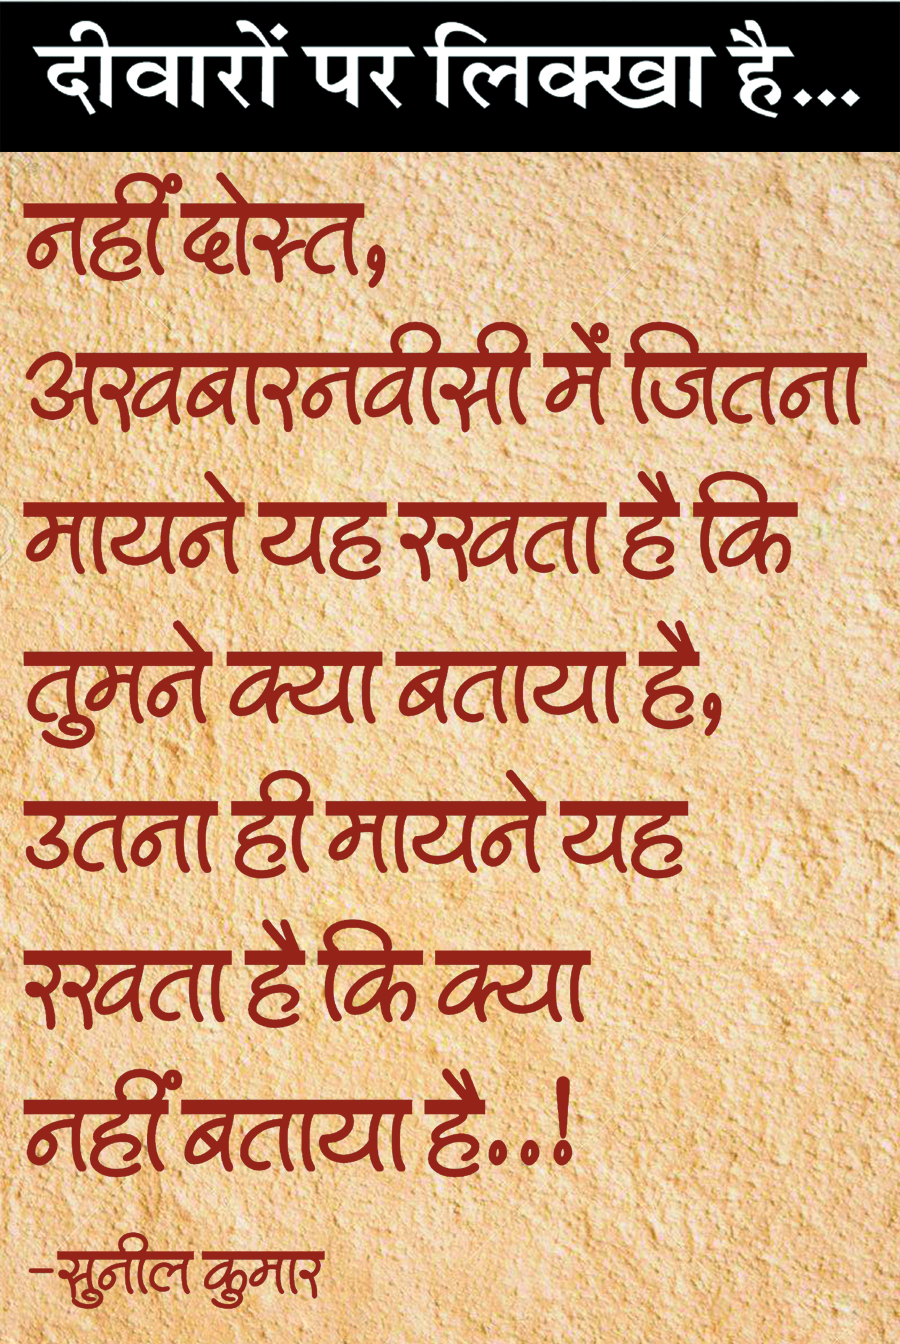 दीवारों पर लिक्खा है...
नहीं दोस्त,
अखबारनवीसी में जितना
मायने यह रखता है कि
तुमने क्या बताया है,
उतना ही मायने यह
रखता है कि क्या
नहीं बताया है..!
-सुनील कुमार